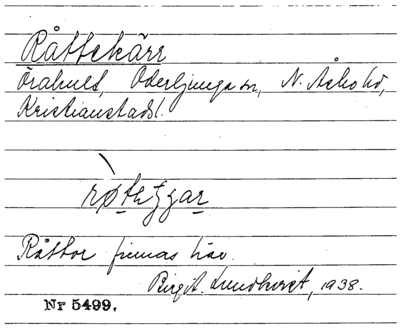 Råttekärr
Örahult, Oderljunga sn, N. Åsbo hd,
Kristianstads l.
Råttor finnas här.
Birgit Lundkvist, 1938.
Nr 5499.